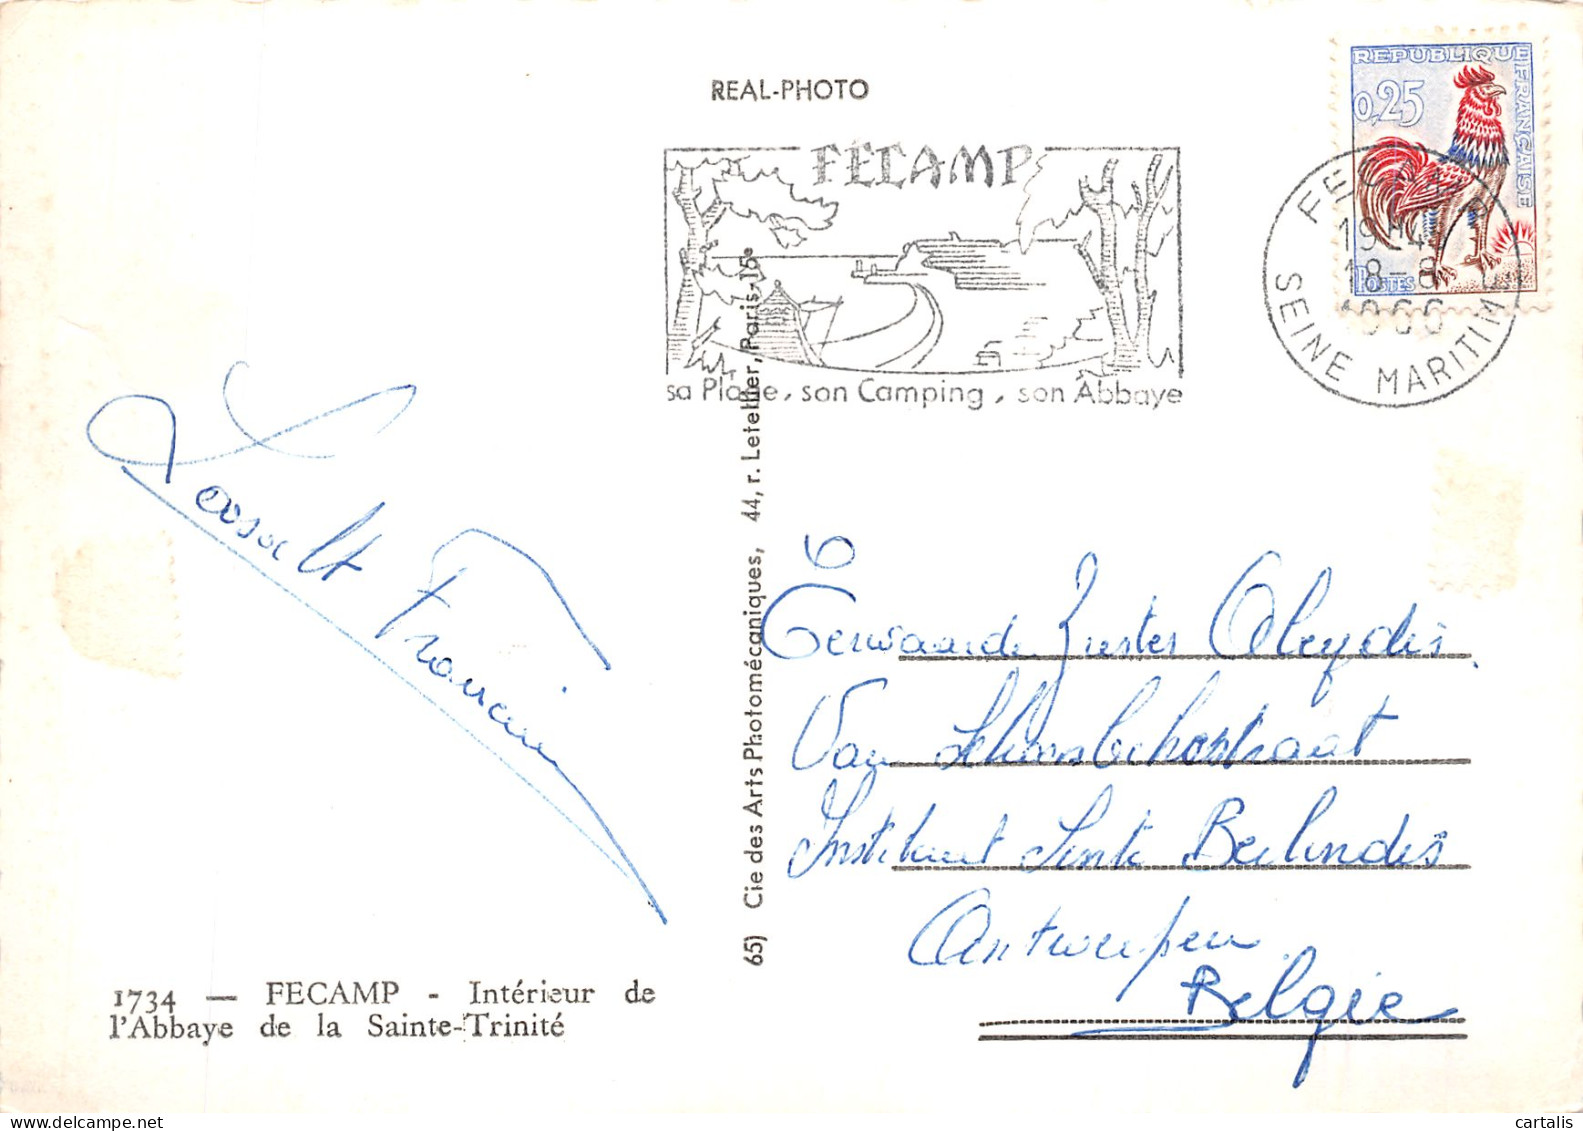 REAL-PHOTO
REPUBLIQUE FRANÇAISE
0,25
POSTES
FECAMP
19H
18-8
1966
SEINE MARITIME
FÉCAMP
sa Plage, son Camping, son Abbaye
65) Cie des Arts Photomécaniques, 44, r. Letellier, Paris-15e
Francine
Eerwaarde Zuster
Van
Instituut Sinte
Antwerpen
Belgie
1734 — FECAMP - Intérieur de
l'Abbaye de la Sainte-Trinité
cartalis
www.delcampe.net